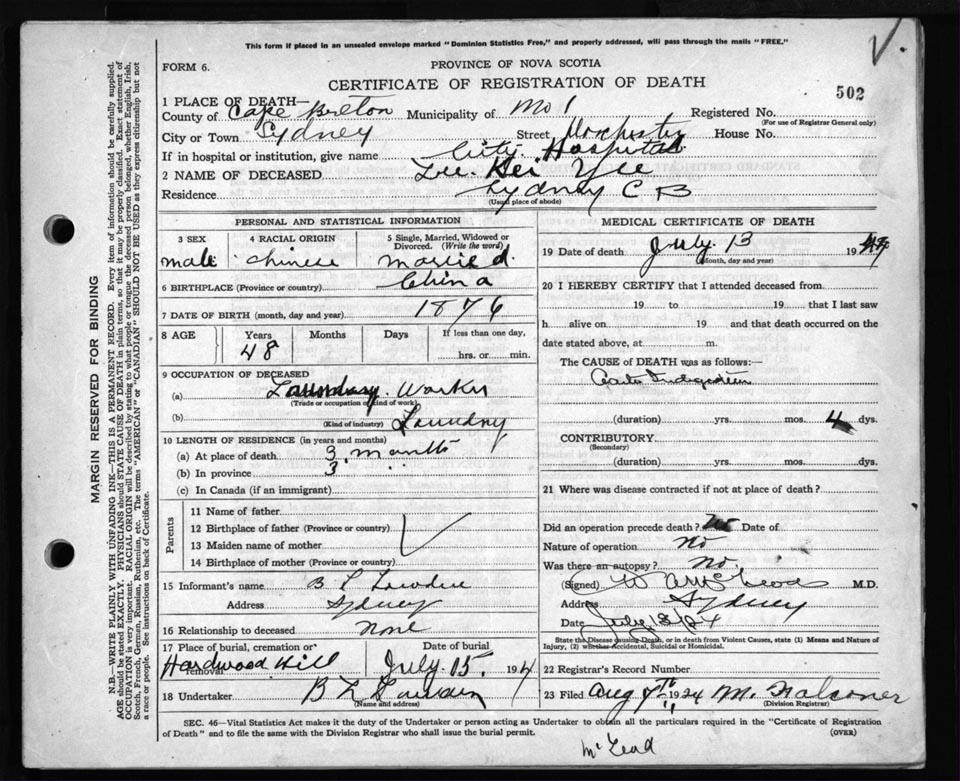 This form if placed in an unsealed envelope marked "Dominion Statistics Free," and properly addressed, will pass through the mails "FREE."
V.
FORM 6.
PROVINCE OF NOVA SCOTIA
CERTIFICATE OF REGISTRATION OF DEATH
502
1 PLACE OF DEATH—
County of Cape Breton Municipality of No 1 Registered No.
(For use of Registrar General only)
City or Town Sydney Street House No.
If in hospital or institution, give name City Hospital
2 NAME OF DECEASED Lee. Hei Yee
Residence Sydney C B
(Usual place of abode)
PERSONAL AND STATISTICAL INFORMATION
3 SEX 4 RACIAL ORIGIN 5 Single, Married, Widowed or Divorced. (Write the word)
male Chinese Married.
6 BIRTHPLACE (Province or country) China
7 DATE OF BIRTH (month, day and year) 1876
8 AGE Years Months Days If less than one day,
48 hrs. or min.
9 OCCUPATION OF DECEASED
(a) Laundry Worker
(Trade or occupation or kind of work)
(b) Laundry
(Kind of industry)
10 LENGTH OF RESIDENCE (in years and months)
(a) At place of death 3 months
(b) In province 3
(c) In Canada (if an immigrant)
Parents
11 Name of father
12 Birthplace of father (Province or country)
13 Maiden name of mother
14 Birthplace of mother (Province or country)
15 Informant's name B L
Address Sydney
16 Relationship to deceased None
17 Place of burial, cremation or removal Date of burial
Hardwood Hill July 15, 1924
18 Undertaker B L
(Name and address)
MEDICAL CERTIFICATE OF DEATH
19 Date of death July 13 19
(Month, day and year)
20 I HEREBY CERTIFY that I attended deceased from
19 to 19 that I last saw
h alive on 19 and that death occurred on the
date stated above, at m.
The CAUSE of DEATH was as follows:
Indigestion
(duration) yrs. mos. 4 dys.
CONTRIBUTORY
(Secondary)
(duration) yrs. mos. dys.
21 Where was disease contracted if not at place of death?
Did an operation precede death? No Date of
Nature of operation no
Was there an autopsy? No.
(Signed) M.D.
Address Sydney
Date July 18/24
State the Disease causing Death, or in death from Violent Causes, state (1) Means and Nature of Injury, (2) whether Accidental, Suicidal or Homicidal.
22 Registrar's Record Number
23 Filed Aug 1924 M. Falconer
(Division Registrar)
SEC. 46—Vital Statistics Act makes it the duty of the Undertaker or person acting as Undertaker to obtain all the particulars required in the "Certificate of Registration of Death" and to file the same with the Division Registrar who shall issue the burial permit. (OVER)
McLeod
MARGIN RESERVED FOR BINDING
N.B.—WRITE PLAINLY WITH UNFADING INK—THIS IS A PERMANENT RECORD. Every item of information should be carefully supplied.
AGE should be stated EXACTLY. PHYSICIANS should STATE CAUSE OF DEATH in plain terms, so that it may be properly classified. Exact statement of
OCCUPATION is very important. RACIAL ORIGIN will be described by stating to what people or tongue the deceased person belonged, whether English, Irish,
Scotch, French, German, Russian, Ruthenian, etc. The terms "AMERICAN" or "CANADIAN" SHOULD NOT BE USED as they express citizenship but not
a race or people. See instructions on back of Certificate.